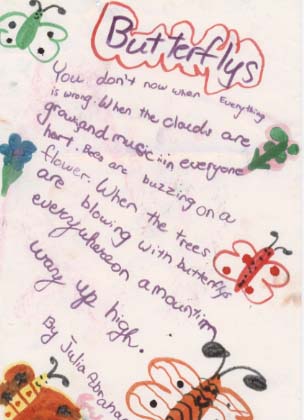 Butterflys
You don't now when Everything
is wrong. When the clouds are
gray and music is in everyone
hart. Bees are buzzing on a
flower. When the trees
are blowing with butterflys
everywhere on a mountin
way up high.
By Julia Abraha